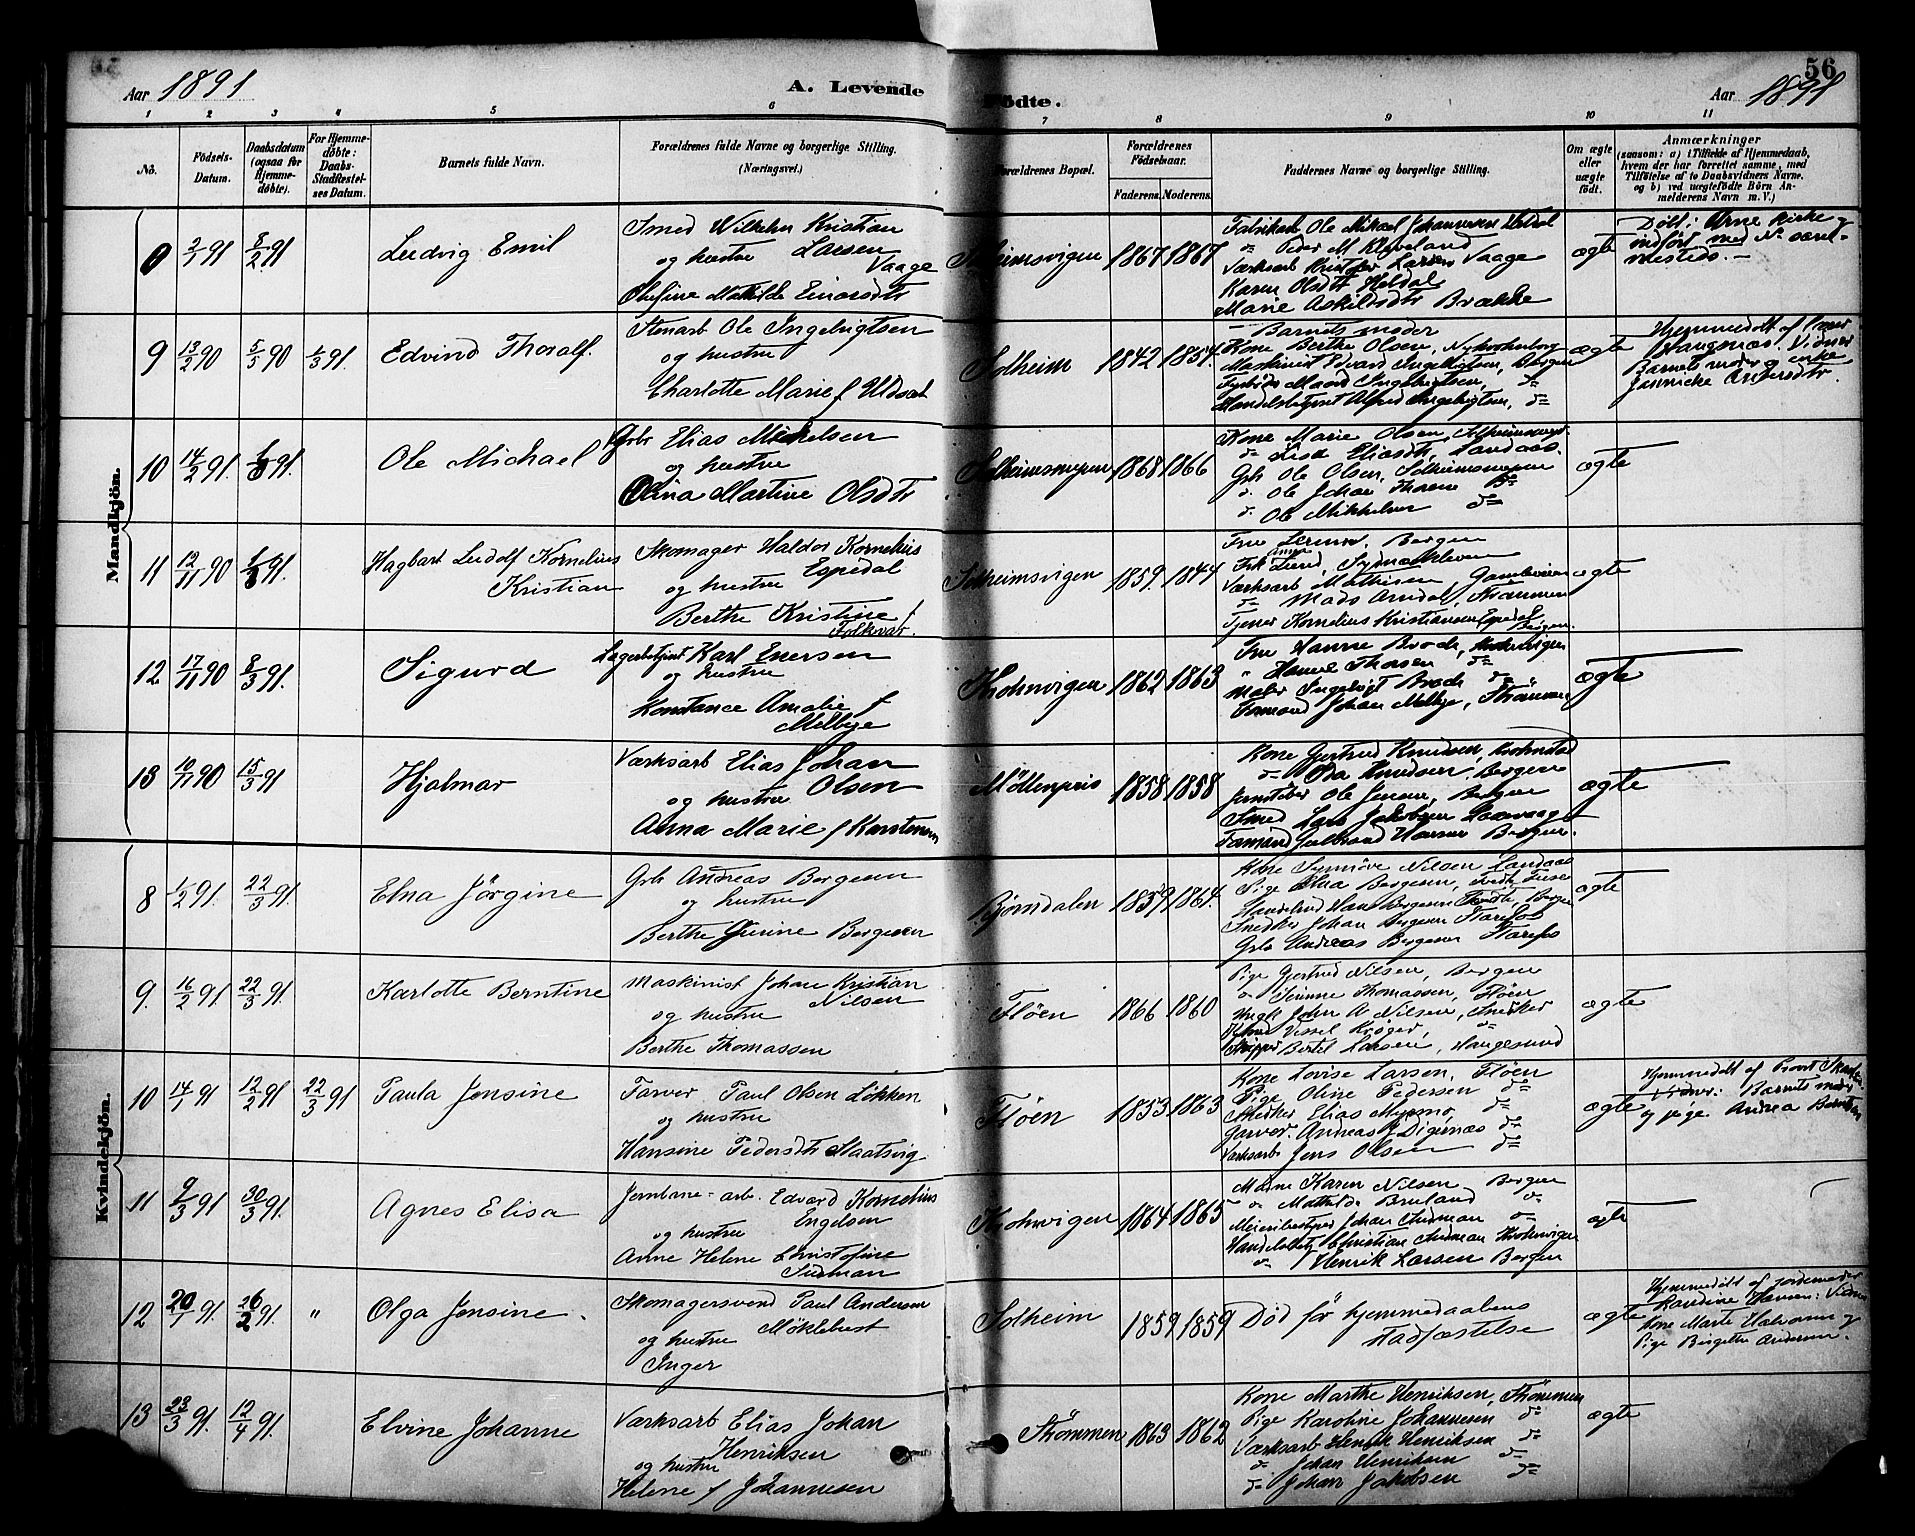 56
Aar 1891
A. Levende
Fødte.
Aar 1891
1 2 3 4 5 6 7 8 9 10 11
No.
Födsels-Datum.
Daabsdatum (ogsaa for Hjemmedøbte).
For Hjemmedøbte: Daabs Stadfæstelses Datum.
Barnets fulde Navn.
Forældrenes fulde Navne og borgerlige Stilling. (Næringsvei.)
Forældrenes Bopæl.
Forældrenes Födselsaar.
Faderens. Moderens.
Faddernes Navne og borgerlige Stilling.
Om ægte eller uægte födt.
Anmærkninger
(saasom: a) i Tilfælde af Hjemmedaab, hvem der har forrettet samme, med Tilföielse af to Daabsvidners Navne, og b) ved uægtefödte Börn Anmelderens Navn m. V.)
Mandkjön.
0 2/1 91 8/2 91 Ludvig Emil
Smed Wilhelm Kristian
og hustru Larsen
Vaage
Olufine Mathilde Einarsdtr
Solheimsvigen 1867 1867
Fabrikarb Ole Mikael Johannesen Heldal
do Peder M Kleveland
Værksarb Kristofer Larsen Vaage
Karen Olsdtr Heldal
Marie Askildsdtr Brække
ægte
Døbt i Arne kirke
indført med No
9 13/2 90 5/5 90 1/3 91 Edvind Thoralf.
Stenarb Ole Ingebrigtsen
og hustru
Charlotte Marie f
Solheim 1842 1854.
Barnets moder
Kone Berthe Olsen, Nykirkeborg
Maskinist Edvard Ingebrigtsen, Bergen
Ingebrigtsen, do
Handelsbetjent Alfred Ingebrigtsen, do
ægte
Hjemmedøbt af
Haugsnæs. Vidner
Barnets moder og enke
Jennicke Andersdtr.
10 14/2 91. 1/3 91. Ole Michael
Grb Elias Mikkelsen
og hustru
Olina Martine Olsdtr
Solheimsmyren 1868 1866
Kone Marie Olsen, Solheimsmyr
do Lisa Eliasdtr, Landaas.
Grb Ole Olsen, Solheimsmyren
d. Ole Johan Thorsen do
d. Ole Mikkelsen do
ægte
11 12/11 90 1/3 91. Hagbart Ludolf Kornelius
Kristian
Skomager Haldor Kornelius
og hustru Espedal
Berthe Kristine f
Folkvar.
Solheimsvigen 1859. 1844
Fru Bergen
Frk Lund, Sydneskleven
Værksarb Mathisen, Gamleveien
do Mads Arndal, Strømmen
Tjener Kornelius Kristiansen Espedal
Bergen.
ægte
12 17/11 90 8/3 91. Sigurd
Lagerbetjent Karl Enersen
og hustru
Konstance Amalie f
Melbye
Krohnvigen 1862 1863
Fru Hanne Brock, Krohnvigen
" Hanne Thorsen do
Maler Ingebrigt Brock do
Formand Johan Melbye, Strømmen
ægte
13 10/11 90 15/3 91. Hjalmar
Værksarb Elias Johan
og hustru Olsen
Anna Marie f Karstensen
Möllenpris 1858 1858
Kone Gjertrud Knudsen, Krohnstad
do Oda Knudsen, Bergen
Jernstøber Ole Jensen, Bergen
Smed Lars Jakobsen Laxevaag
Formand Gulbrand Hansen Bergen.
ægte
Kvindekjön.
8 1/2 91. 22/3 91. Elna Jörgine
Grb Andreas Børgesen
og hustru
Berthe Børgesen
Björndalen 1859 1864.
Kone Synnöve Nilsen Landaas
Pige Elna Børgesen,
Hans Børgesen Bergen
Snedker Johan Børgesen
Grb Andreas Børgesen
ægte
9. 16/2 91 22/3 91. Karlotte Berntine
Maskinist Johan Kristian
Nilsen
og hustru
Berthe Thomassen
Flöen 1866 1860
Pige Gjertrud Nilsen, Bergen
do Thomassen, Flöen
Ungk John A Nilsen, Snedker
Vessel Kröger, do
Skipper Bertel Larsen, Haugesund
ægte
10 14/1 91 12/2 91 22/3 91 Paula Jensine
Farver Paul Olsen Løkken
og hustru
Hansine Pedersdtr Maatsvig
Flöen 1853 1863
Kone Lovise Larsen, Flöen
Pige Oline Pedersen do
Snedker Elias Myrmo, do
Garver. Andreas J Digernæs do
Værksarb Jens Olsen do
ægte
Hjemmedøbt af Provst
Vidner: Barnets moder
og pige Andrea Berntsen
11 9/3 91 30/3 91. Agnes Elisa
Jernbane-arb. Edvard Kornelius
Engelsen
og hustru
Anne Helene Christofine
Sudman
Krohnvigen 1864 1865
Madme Karen Nilsen Bergen
do Mathilde Bruland do
Meieribestyrer Johan Sudman do
Handelsbetj Christian Sudman Krohnvigen
do Henrik Larsen Bergen
ægte
12 20/1 91. 26/2 91. " Olga Jensine.
Skomagersvend Paul Andersen
og hustru Møklebust
Inger
Solheim 1859 1859
Død før hjemmedaabens
stadfæstelse
ægte
Hjemmedøbt af jordemoder
Randine Hansen: Vidner
Kone Marte Halvorsen og
Pige Bergitte Andersen.
13 23/3 91. 12/4 91. Elvine Johanne
Værksarb Elias Johan
Henriksen
og hustru
Helene f Johannesen
Strømmen 1863 1862
Kone Marthe Henriksen, Strømmen
Pige Karoline Johannesen do
Værksarb Henrik Henriksen do
do Johan Henriksen do
do Johan Jakobsen do
ægte